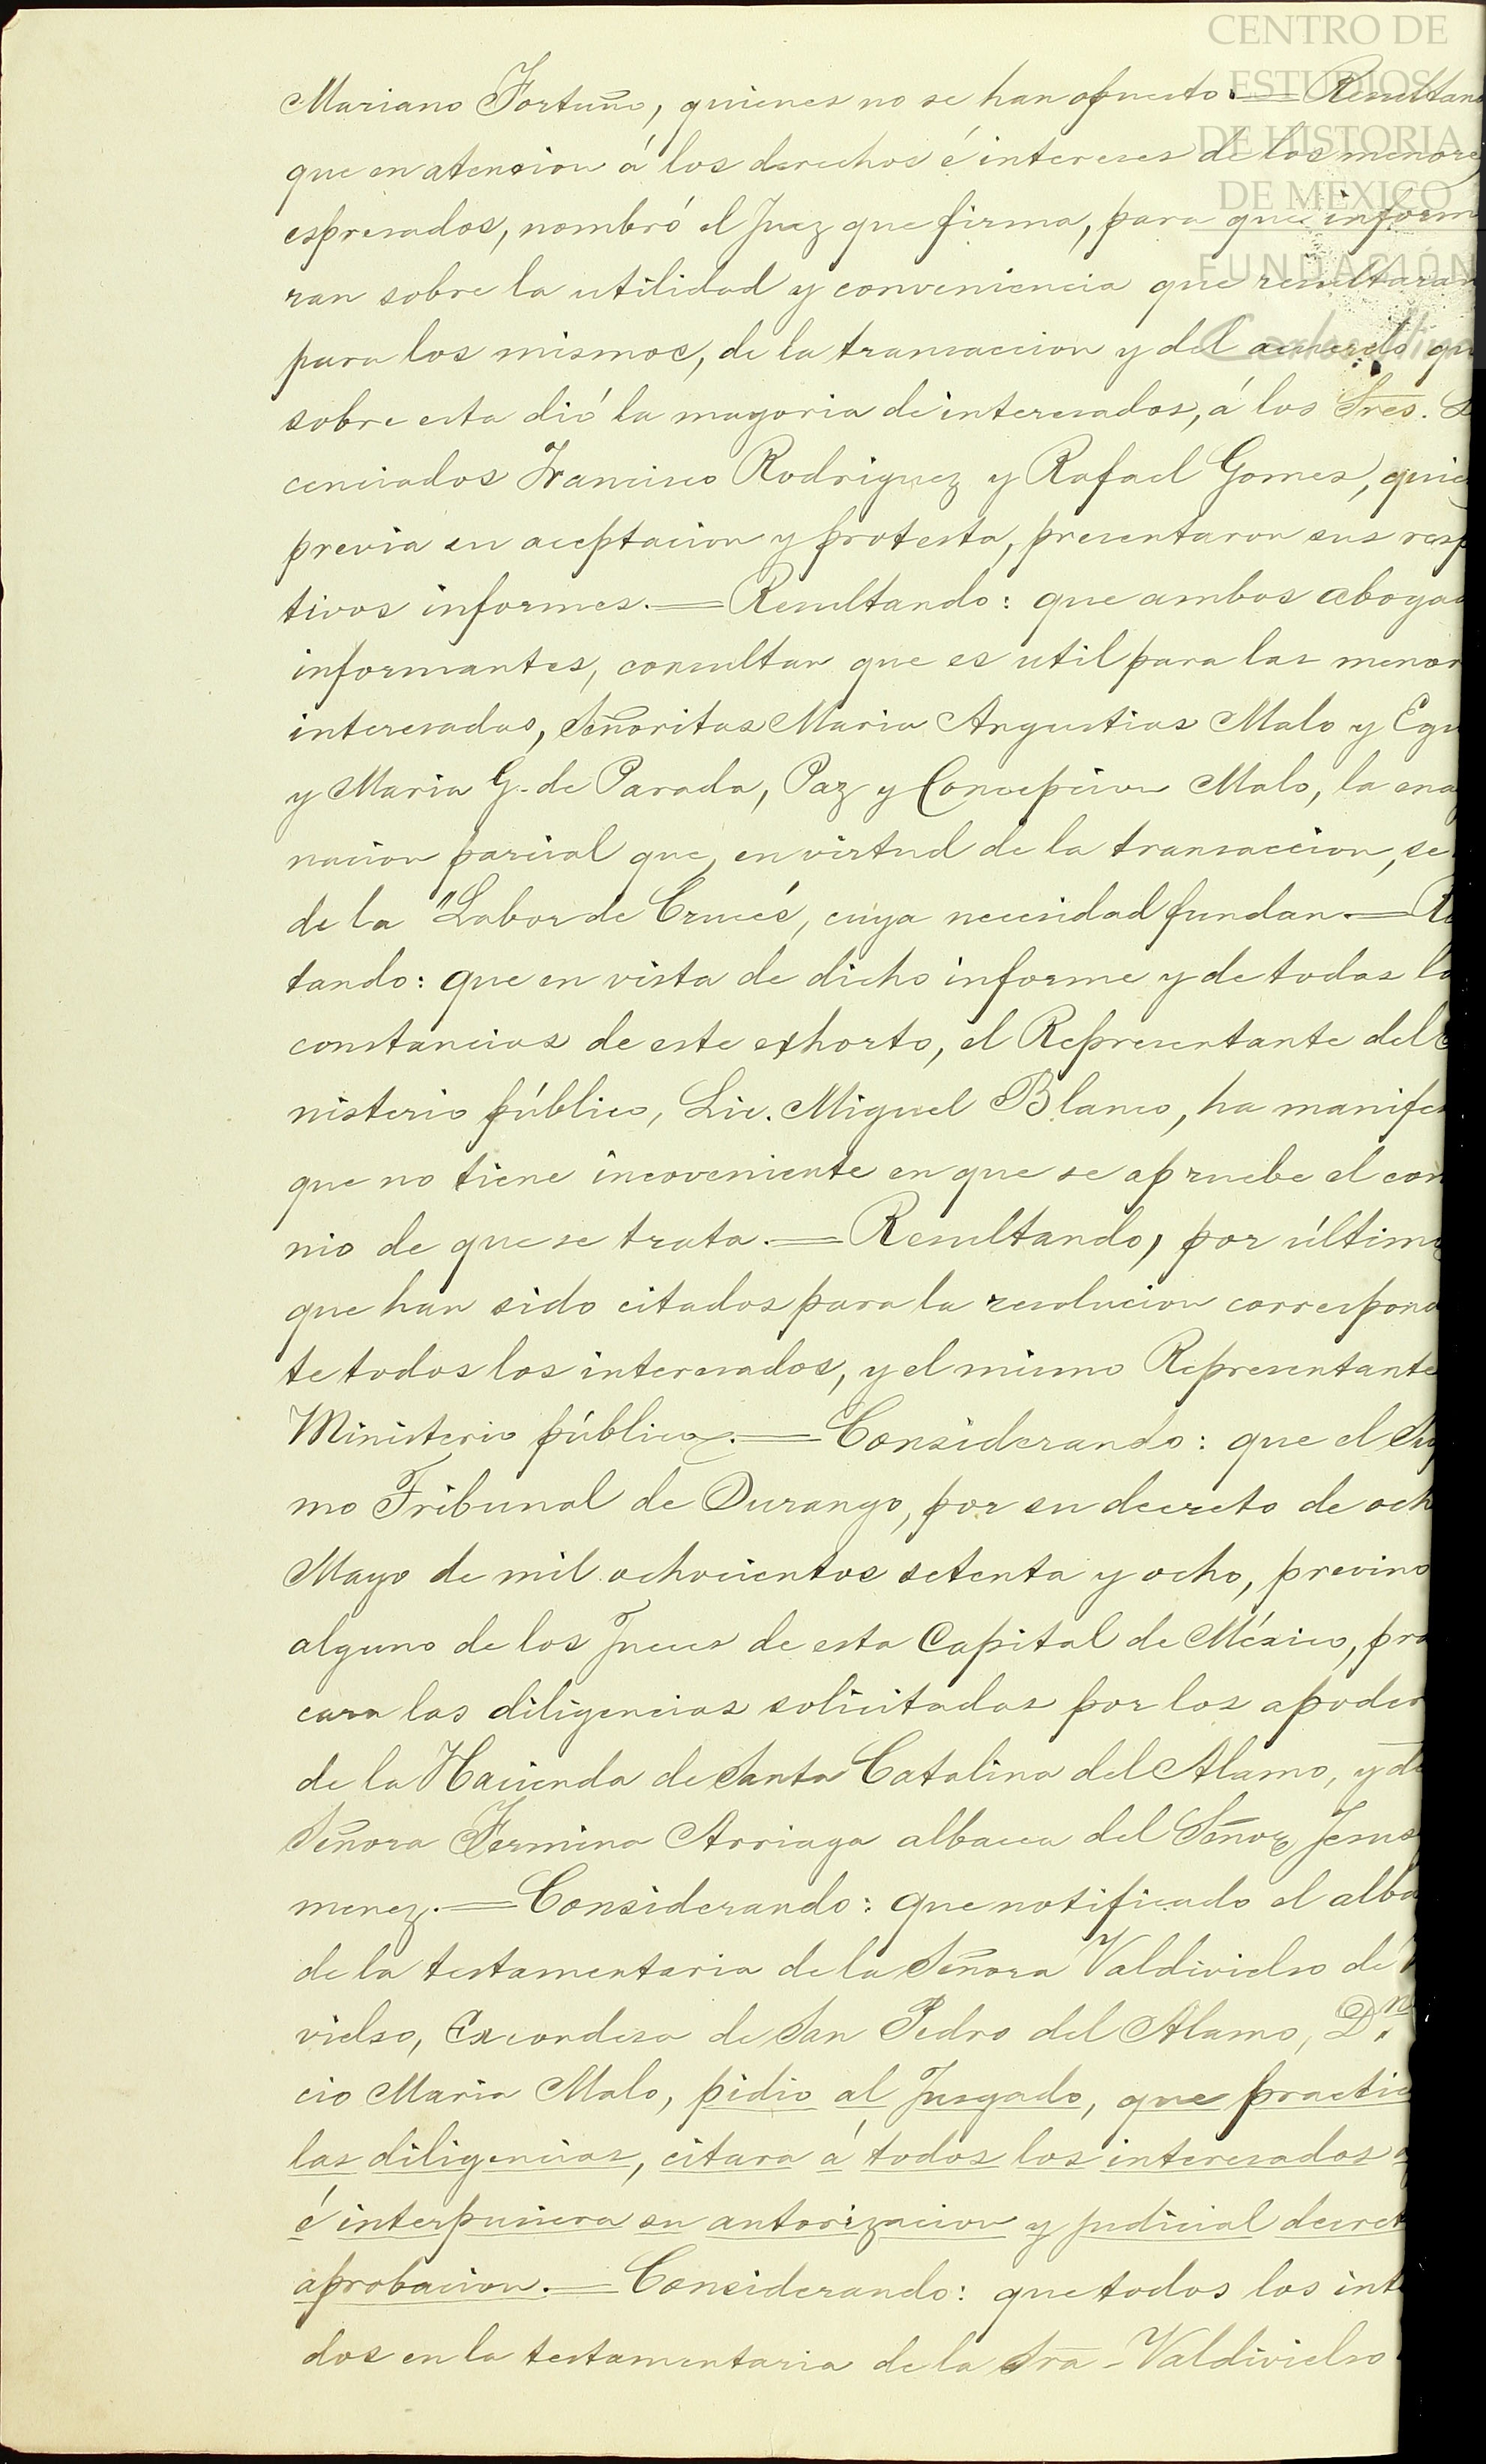 CENTRO DE
ESTUDIOS
DE HISTORIA
DE MEXICO
FUNDACIÓN
Mariano Fortuño, quienes no se han opuesto.=Resultan
que en atencion á los derechos é intereses de los menores
espresados, nombró el Juez que firma, para que inform
ran sobre la utilidad y conveniencia que resultaran
para los mismos, de la transaccion y del acuerdo qu
sobre esta dió la mayoria de interesados, á los Sres. L
cenciados Francisco Rodriguez y Rafael Gomes, quie
previa su aceptacion y protesta, presentaron sus resp
tivos informes.=Resultando: que ambos abogad
informantes, consultan que es util para las menor
interesadas, Señoritas Maria Angustias Malo y Egu
y Maria G. de Parada, Paz y Concepcion Malo, la ena
nacion parcial que, en virtud de la transaccion, se
de la "Labor de Cruces, cuya necesidad fundan.=Re
tando: que en vista de dicho informe y de todas la
constancias de este exhorto, el Representante del
nisterio público, Lic. Miguel Blanco, ha manifes
que no tiene incoveniente en que se apruebe el con
nio de que se trata.=Resultando, por último
que han sido citados para la resolucion correspond
te todos los interesados, y el mismo Representante
Ministerio público.=Considerando: que el Sup
mo Tribunal de Durango, por su decreto de och
Mayo de mil ochocientos setenta y ocho, previno
alguno de los Jueces de esta Capital de México, pra
cara las diligencias solicitadas por los apoder
de la Hacienda de Santa Catalina del Alamo, y de
Señora Fermina Arriaga albacea del Señor Jesus
menez.=Considerando: que notificado el alba
de la testamentaria de la Señora Valdivielso de V
vielso, Excondesa de San Pedro del Alamo, Dn.
cio Maria Malo, pidio al Jusgado, que practic
las diligencias, citara á todos los interesados
é interpusiera su autorizacion y judicial decret
aprobacion.=Considerando: que todos los inte
dos en la testamentaria de la Sra - Valdivielso